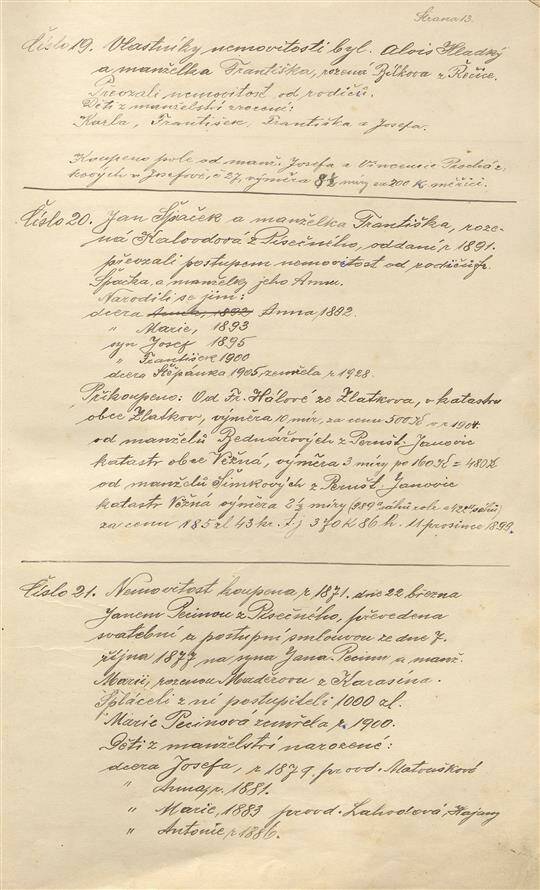 Strana 13.
Číslo 19. Vlastníky nemovitosti byl. Alois Hladký
a manželka Františka, rozená Bílkova z Řečice.
Převzali nemovitost od rodičů.
Děti z manželství zrozené:
Karla, František, Františka a Josefa.
Koupeno pole od manž. Josefa a Vincencie Procház-
kových v Josefově, č 27, výměra 8½ míry za 200 K měřici.
Číslo 20. Jan Špaček a manželka Františka, roze-
ná Kalvodová z Písečného, oddaní r 1891.
převzali postupem nemovitost od rodičů Jr.
Špačka, a manželky jeho Anny.
Narodili se jim:
dcera Anna, 1892 Anna, 1892.
" Marie, 1893
syn Josef 1895
" František 1900
dcera Štěpánka 1905, zemřela r 1928.
Přikoupeno: Od Fr. Hálové ze Zlatkova, v katastru
obce Zlatkov, výměra 10 mír, za cenu 500 K v r 1904.
od manželů Bednářových z Pernšt. Janovic
katastr obce Věžná, výměra 3 míry po 160 K = 480 K
od manželů Šimkových z Pernšt. Janovic
katastr Věžná výměra 2½ míry
za cenu 185 zl 43 kr. t j 370 K 86 h. 11 prosince 1899.
Číslo 21. Nemovitost koupena r 1871. dne 22. března
Janem Pecinou z Písečného, převedena
svatební a postupní smlouvou ze dne 7.
října 1877 na syna Jana Pecinu a manž.
Marii, rozenou Maděrovu z Karasína.
Spláceli z ní postupiteli 1000 zl.
Marie Pecinová zemřela r. 1900.
Děti z manželství narozené:
dcera Josefa, r 1879. provd. Matoušková
" Anna, r. 1881.
" Marie, 1883 provd. Lahodová, Hajany
" Antonie, r 1886.